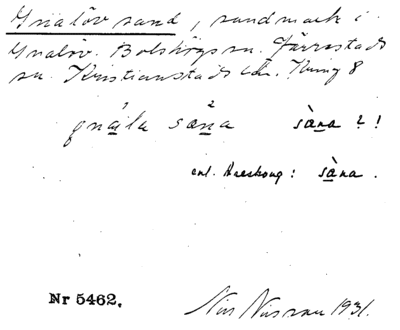 Gnalöv sand, sandmark i
Gnalöv. Bolshögs sn. Järrestads
Kristianstads län.
gnála sana sàna ? !
enl. : sàna.
Nr 5462. Nils Nilsson 1931.